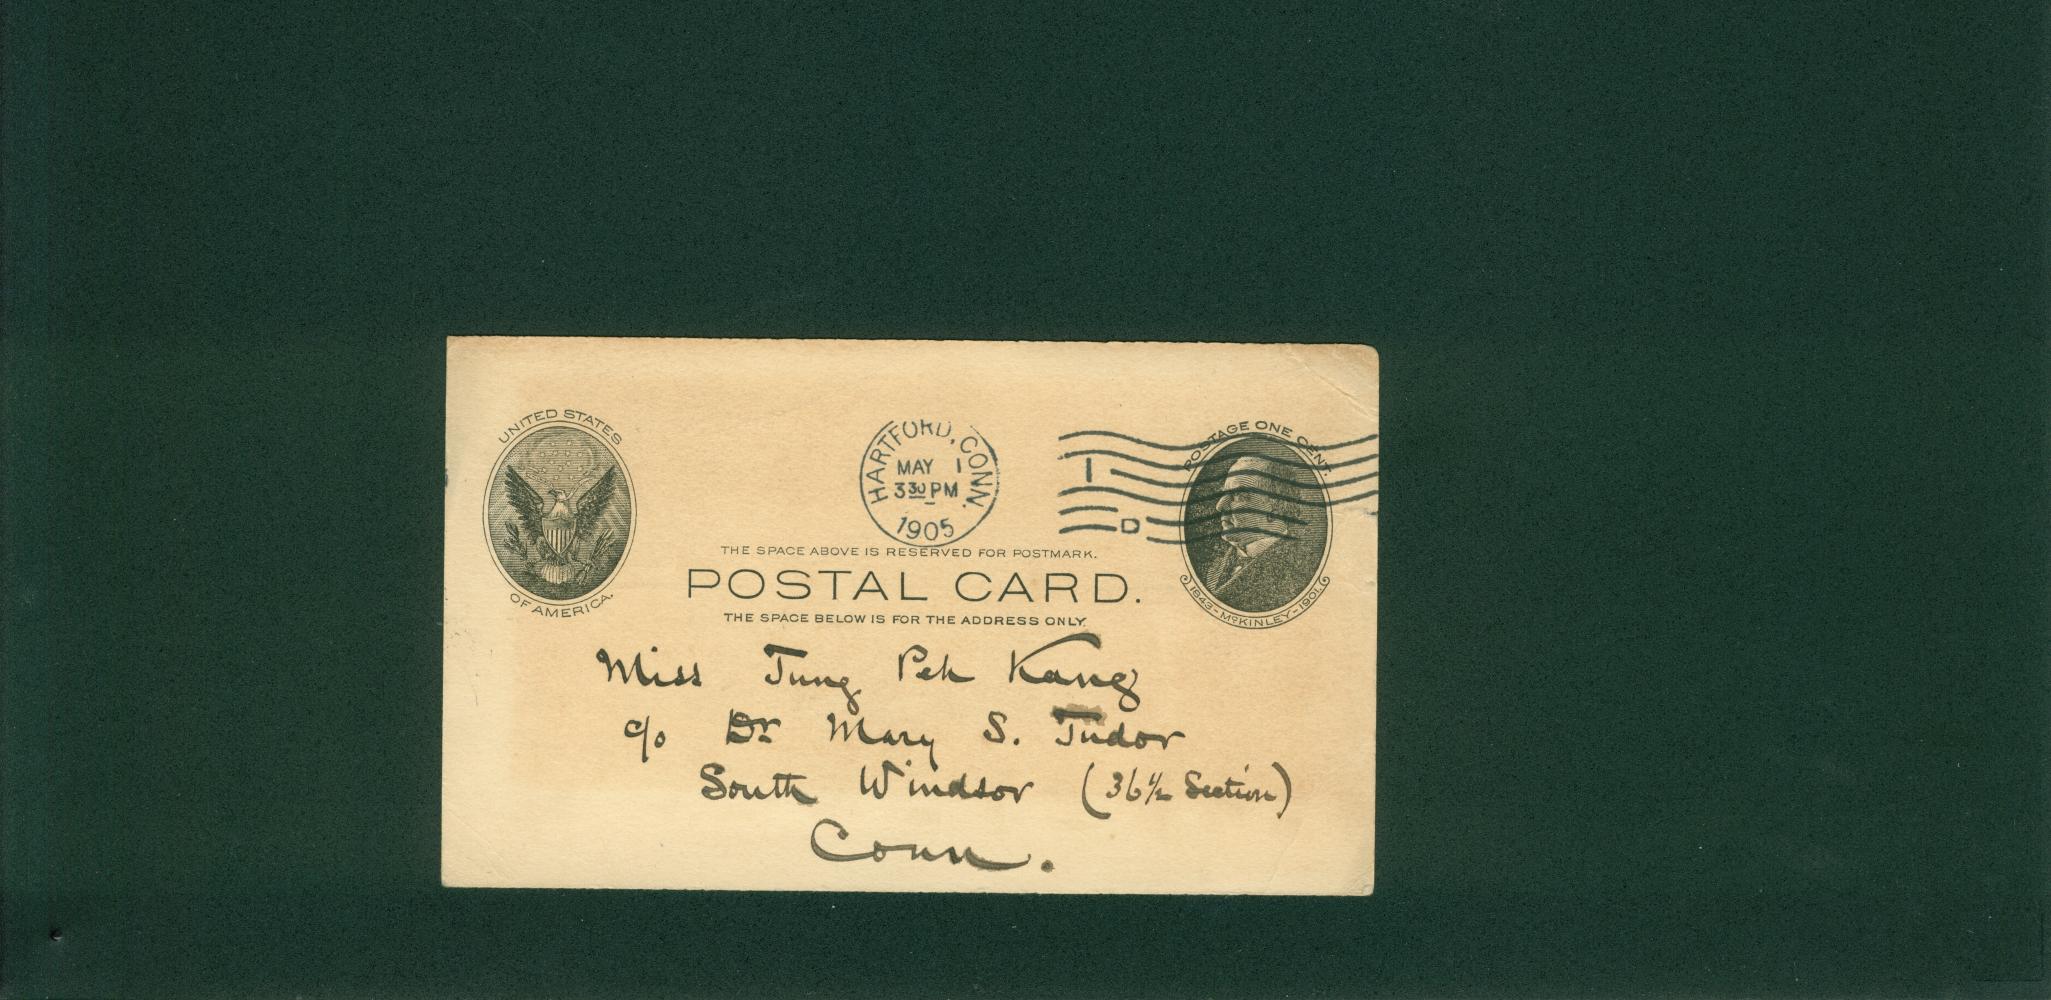 UNITED STATES
OF AMERICA.
HARTFORD, CONN.
MAY 1
3 30 PM
1905
1
D
POSTAGE ONE CENT.
1843-McKINLEY-1901.
THE SPACE ABOVE IS RESERVED FOR POSTMARK.
POSTAL CARD.
THE SPACE BELOW IS FOR THE ADDRESS ONLY.
Miss Tung Peh Kang
c/o Dr Mary S. Tudor
South Windsor (36 1/2 Section)
Conn.